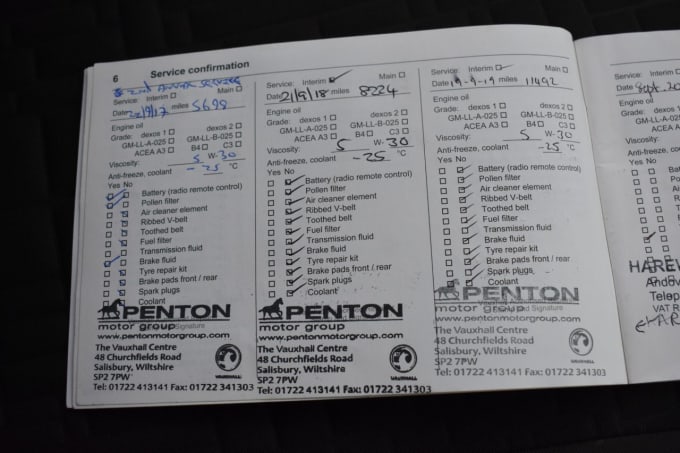 6 Service confirmation
2nd ANNUAL SERVICE
Service: Interim ☐ Main ☐
Date 22/9/17 miles 5698
Engine oil
Grade: dexos 1 ☐ dexos 2 ☐
GM-LL-A-025 ☐ GM-LL-B-025 ☐
ACEA A3 ☐ B4 ☐ C3 ☐
Viscosity: 5 W-30
Anti-freeze, coolant -25 °C
Yes No
Battery (radio remote control)
Pollen filter
Air cleaner element
Ribbed V-belt
Toothed belt
Fuel filter
Transmission fluid
Brake fluid
Tyre repair kit
Brake pads front / rear
Spark plugs
Coolant
PENTON
motor group
Signature
www.pentonmotorgroup.com
The Vauxhall Centre
48 Churchfields Road
Salisbury, Wiltshire
SP2 7PW
VAUXHALL
Tel: 01722 413141 Fax: 01722 341303
Service: Interim ☑ Main ☐
Date 21/9/18 miles 8224
Engine oil
Grade: dexos 1 ☐ dexos 2 ☐
GM-LL-A-025 ☐ GM-LL-B-025 ☐
ACEA A3 ☐ B4 ☐ C3 ☐
Viscosity: 5 W-30
Anti-freeze, coolant -25 °C
Yes No
Battery (radio remote control)
Pollen filter
Air cleaner element
Ribbed V-belt
Toothed belt
Fuel filter
Transmission fluid
Brake fluid
Tyre repair kit
Brake pads front / rear
Spark plugs
Coolant
PENTON
motor group
www.pentonmotorgroup.com
The Vauxhall Centre
48 Churchfields Road
Salisbury, Wiltshire
SP2 7PW
VAUXHALL
Tel: 01722 413141 Fax: 01722 341303
Service: Interim ☑ Main ☐
Date 19-9-19 miles 11492
Engine oil
Grade: dexos 1 ☐ dexos 2 ☐
GM-LL-A-025 ☐ GM-LL-B-025 ☐
ACEA A3 ☐ B4 ☐ C3 ☐
Viscosity: 5 W-30
Anti-freeze, coolant -25 °C
Yes No
Battery (radio remote control)
Pollen filter
Air cleaner element
Ribbed V-belt
Toothed belt
Fuel filter
Transmission fluid
Brake fluid
Tyre repair kit
Brake pads front / rear
Spark plugs
Coolant
PENTON
motor group
Signature
www.pentonmotorgroup.com
The Vauxhall Centre
48 Churchfields Road
Salisbury, Wiltshire
SP2 7PW
Tel: 01722 413141 Fax: 01722 341303
Service:
Date Sept. 20
Engine oil
Grade:
GM-L
AC
Viscosity:
Anti-freeze
Yes No
HAREW
Andov
Telep
VAT R